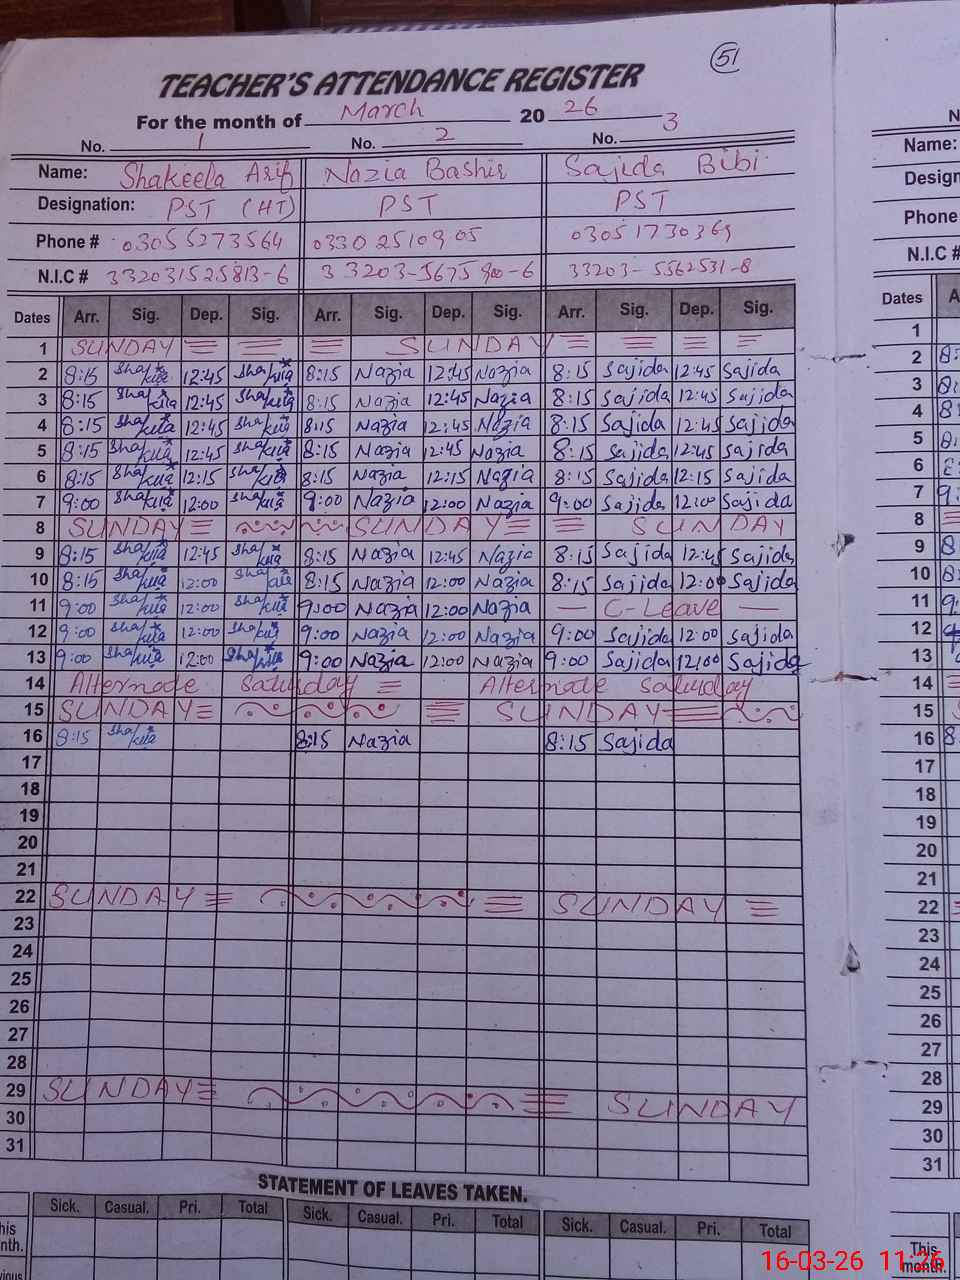 51
TEACHER'S ATTENDANCE REGISTER
For the month of March 20 26
No. 1 No. 2 No. 3
Name: Shakeela Arif Nazia Bashir Sajida Bibi
Designation: PST (HT) PST PST
Phone # 03055273564 03302510905 03051730369
N.I.C # 332031525813-6 33203-5675900-6 33203-5562531-8
Dates Arr. Sig. Dep. Sig. Arr. Sig. Dep. Sig. Arr. Sig. Dep. Sig.
1 SUNDAY SUNDAY
2 8:15 Shakila 12:45 Shakila 8:15 Nazia 12:45 Nazia 8:15 Sajida 12:45 Sajida
3 8:15 Shakila 12:45 Shakila 8:15 Nazia 12:45 Nazia 8:15 Sajida 12:45 Sajida
4 8:15 Shakila 12:45 Shakila 8:15 Nazia 12:45 Nazia 8:15 Sajida 12:45 Sajida
5 8:15 Shakila 12:45 Shakila 8:15 Nazia 12:45 Nazia 8:15 Sajida 12:45 Sajida
6 8:15 Shakila 12:15 Shakila 8:15 Nazia 12:15 Nazia 8:15 Sajida 12:15 Sajida
7 9:00 Shakila 12:00 Shakila 9:00 Nazia 12:00 Nazia 9:00 Sajida 12:00 Sajida
8 SUNDAY SUNDAY SUNDAY
9 8:15 Shakila 12:45 Shakila 8:15 Nazia 12:45 Nazia 8:15 Sajida 12:45 Sajida
10 8:15 Shakila 12:00 Shakila 8:15 Nazia 12:00 Nazia 8:15 Sajida 12:00 Sajida
11 9:00 Shakila 12:00 Shakila 9:00 Nazia 12:00 Nazia — C-Leave —
12 9:00 Shakila 12:00 Shakila 9:00 Nazia 12:00 Nazia 9:00 Sajida 12:00 Sajida
13 9:00 Shakila 12:00 Shakila 9:00 Nazia 12:00 Nazia 9:00 Sajida 12:00 Sajida
14 Alternate Saturday Alternate Saturday
15 SUNDAY SUNDAY
16 8:15 Shakila 8:15 Nazia 8:15 Sajida
17
18
19
20
21
22 SUNDAY SUNDAY
23
24
25
26
27
28
29 SUNDAY SUNDAY
30
31
STATEMENT OF LEAVES TAKEN.
Sick. Casual. Pri. Total Sick. Casual. Pri. Total Sick. Casual. Pri. Total
Name:
Phone #
N.I.C #
Dates
1
2
3
4
5
6
7
8
9
10
11
12
13
14
15
16
17
18
19
20
21
22
23
24
25
26
27
28
29
30
31
This
month.
16-03-26 11:26